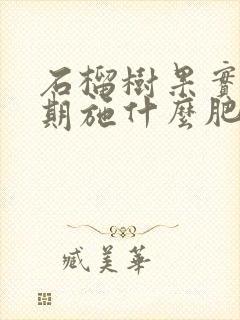 石榴樹果實
期施什麼肥
臧美華